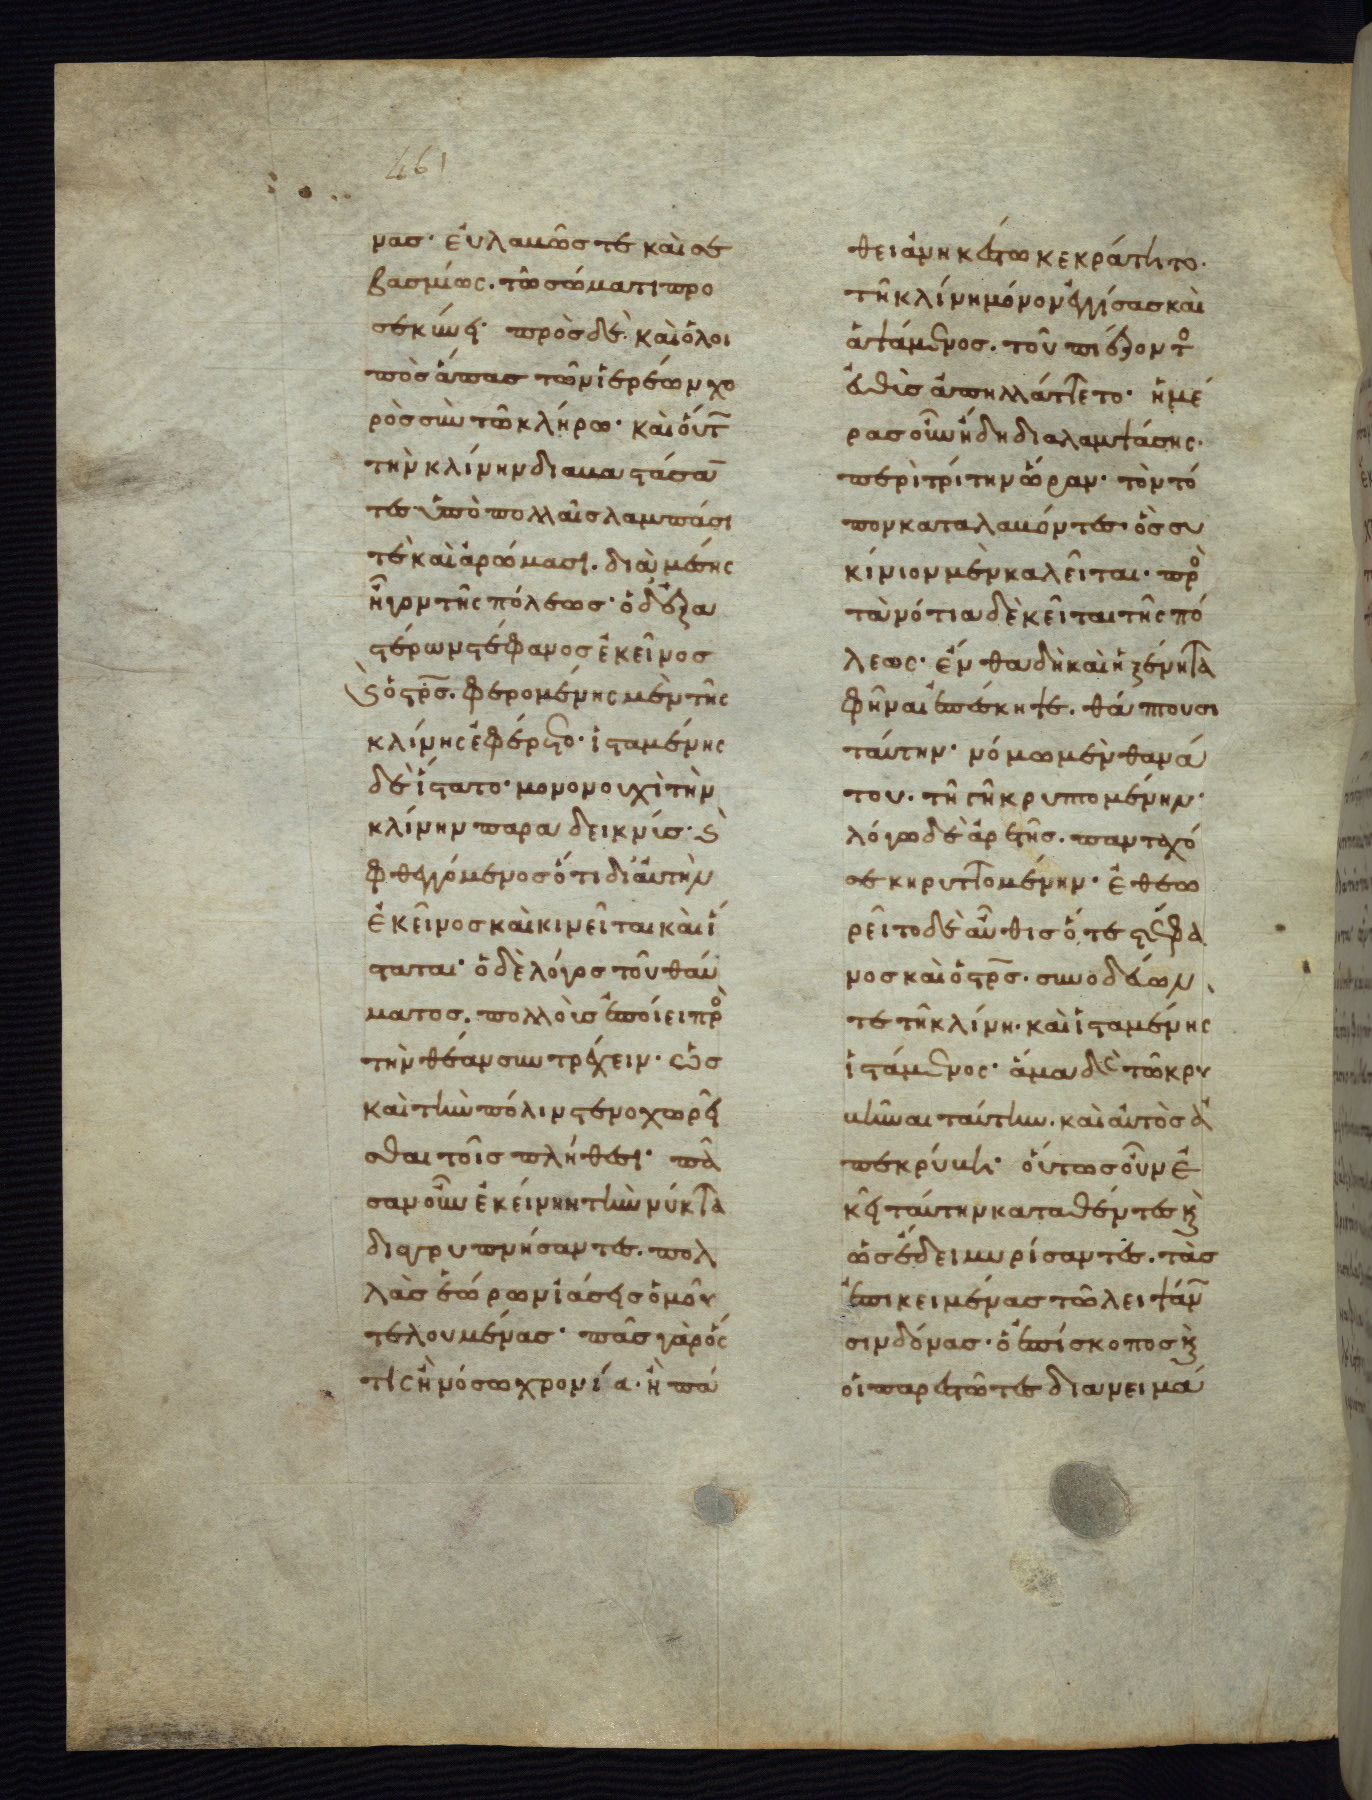 461
νασ· εὐλαβῶσ τὲ καὶ σε
βασμίως. τῶ σώματι προ
σεκύνει· πρὸσ δὲ καὶ ὅλοι
πὸσ ἅπασ τῶν ἱερέων χο
ρὸσ σὺν τῶ κλήρω· καὶ οὕτ
τὴν κλίνην διαβαστάσαν
τεσ ὑπὸ πολλαῖσ λαμπάσι
τὲ καὶ ἀρώμασι. διὰ μέσης
ἦγον τῆς πόλεωσ· ὁ δ' ἐξ ἀ
στέρων στέφανοσ ἐκεῖνοσ
καὶ ὁ στρσ. φερομένης μὲν τῆς
κλίνης ἐφέρετο· ἱσταμένης
δὲ ἵστατο· μονονουχὶ τὴν
κλίνην παραδεικνύσ· καὶ
φθεγγόμενοσ ὅτι δι' αὐτὴν
ἐκεῖνοσ καὶ κινεῖται καὶ ἵ
σταται· ὁ δὲ λόγοσ τοῦ θαύ
ματοσ. πολλοὺσ ἐποίει πρὸ
τὴν θέαν συντρέχειν· ὡσ
καὶ τὴν πόλιν στενοχωρεῖ
σθαι τοῖσ πλήθεσι· πᾶ
σαν οὖν ἐκείνην τὴν νύκτα
διαγρυπνήσαντεσ. πολ
λὰσ ἑώρων ἰάσεισ ὁμοῦ
τελουμένασ· πᾶσ γὰρ ὅς
τις ἢ νόσω χρονία. ἢ πά
θει ἀνηκέστω κεκράτητο.
τῆ κλίνη μόνον ἐγγίσασ καὶ
ἁψάμενοσ. τοῦ πιέζοντο
εὐθὺσ ἀπηλλάττετο· ἡμέ
ρασ οὖν ἤδη διαλαμψάσης.
περὶ τρίτην ὥραν· τὸν τό
πον καταλαβόντεσ· ὃσ συ
κίνιον μὲν καλεῖται. πρὸ
τὰ νότια δὲ κεῖται τῆς πό
λεως· ἔνθα δὴ καὶ ἡ ξένη τα
φῆναι ἐπέσκηψε. θάπτουσι
ταύτην· νόμω μὲν θανά
του. τῆ γῆ κρυπτομένην·
λόγω δὲ ἀρετῆσ. πανταχό
σε κηρυττομένην· ἐθεω
ρεῖτο δὲ αὖθισ ὅ τε στέφα
νοσ καὶ ὁ στρσ. συνοδεύων
τε τῆ κλίνη. καὶ ἱσταμένης
ἱστάμενος· ἅμα δὲ τῶ κρυ
βῆναι ταύτην. καὶ αὐτὸσ ἀ
πεκρύβη· οὕτωσ οὖν ἐ
κεῖ ταύτην καταθέντεσ καὶ
ὡσ ἔδει μυρίσαντεσ. τὰσ
ἐπικειμένασ τῶ λειψάν
σινδόνασ. ὁ ἐπίσκοποσ καὶ
οἱ παρεστῶτεσ διανειμά